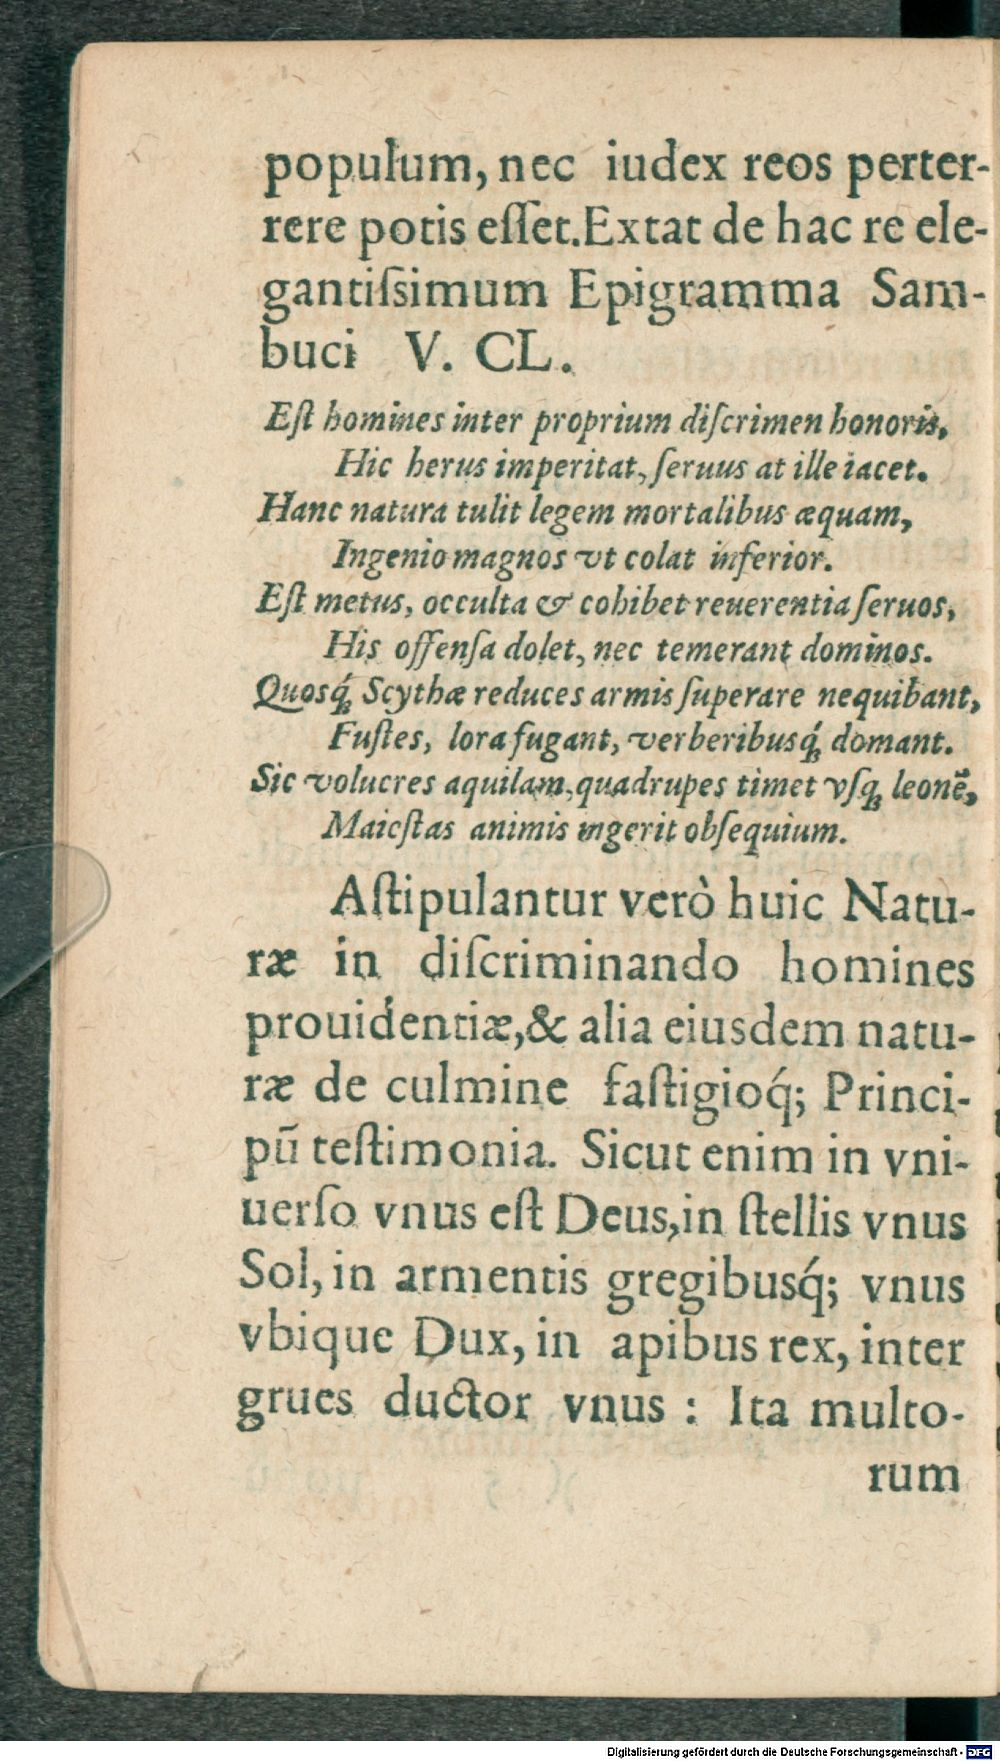 populum, nec iudex reos perter-
rere potis eſſet. Extat de hac re ele-
gantiſsimum Epigramma Sam-
buci V. CL.
Eſt homines inter proprium diſcrimen honoris,
Hic herus imperitat, ſeruus at ille iacet.
Hanc natura tulit legem mortalibus æquam,
Ingenio magnos vt colat inferior.
Eſt metus, occulta & cohibet reuerentia ſeruos,
His offenſa dolet, nec temerant dominos.
Quosq́ꝫ Scythæ reduces armis ſuperare nequibant,
Fuſtes, lora fugant, verberibusq́ꝫ domant.
Sic volucres aquilam, quadrupes timet vſqꝫ leonē,
Maieſtas animis ingerit obſequium.
Aſtipulantur verò huic Natu-
ræ in diſcriminando homines
prouidentiæ, & alia eiusdem natu-
ræ de culmine faſtigioq́; Princi-
pū teſtimonia. Sicut enim in vni-
uerſo vnus eſt Deus, in ſtellis vnus
Sol, in armentis gregibusq́; vnus
vbique Dux, in apibus rex, inter
grues ductor vnus : Ita multo-
rum
Digitalisierung gefördert durch die Deutsche Forschungsgemeinschaft - DFG